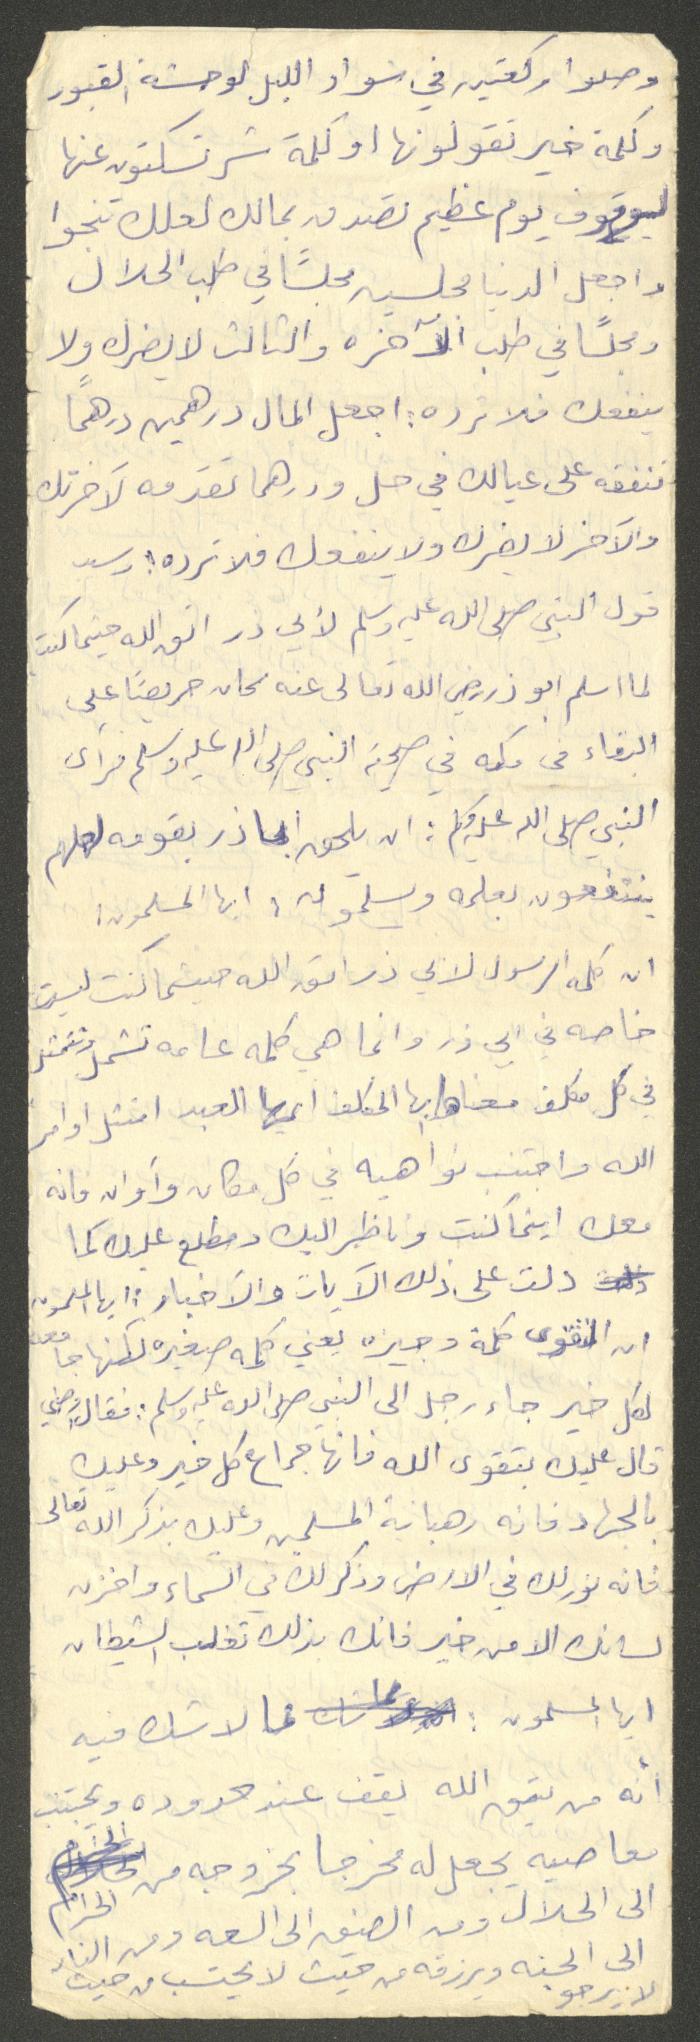 وصلوا ركعتين في سواد الليل لوحشة القبور
وكلمة خير تقولونها او كلمة شر تسكتون عنها
لوقوف يوم عظيم تصدق بمالك لعلك تنجوا
واجعل الدنيا مجلسين مجلسًا في طلب الحلال
ومجلسًا في طلب الآخره والثالث لا يضرك ولا
ينفعك فلا ترده : اجعل المال درهمين درهمًا
تنفقه على عيالك في حل ودرهما تقدمه لآخرتك
والآخر لا يضرك ولا ينفعك فلا ترده :
قول النبي صلى الله عليه وسلم لأبي ذر اتق الله حيثما كنت
لما اسلم ابو ذر رضي الله تعالى عنه كان حريصًا على
البقاء في مكه في صحبة النبي صلى الله عليه وسلم فرأى
النبي صلى الله عليه وسلم : ان يلحق ابا ذر بقومه لعلهم
ينتفعون بعلمه ويسلموا له : ايها المسلمون :
ان كلمه الرسول لابي ذر اتق الله حيثما كنت ليست
خاصه في ابي ذر وانما هي كلمه عامه تشمل وتتمثل
في كل مكلف معناها ايها المكلف ايها العبد امتثل اوامر
الله واجتنب نواهيه في كل مكان وآوان فانه
معك اينما كنت وناظر اليك ومطلع عليك كما
دلت على ذلك الآيات والآخبار : ايها المسلمون
ان التقوى كلمة وجيزه يعني كلمه صغيره لكنها جامعه
لكل خير جاء رجل الى النبي صلى الله عليه وسلم : فقال اوصني
قال عليك بتقوى الله فانها جماع كل خير وعليك
بالجهاد فانه رهبانية المسلمين وعليك بذكر الله تعالى
فانه نور لك في الارض وذكر لك في السماء واخزن
لسانك الا من خير فانك بذلك تغلب الشيطان
ايها المسلمون : مما لا شك فيه
أنه من يتق الله يقف عند حدوده ويجتنب
معاصيه يجعل له مخرجا بخروجه من الحرام
الى الحلال ومن الضيق الى السعه ومن النار
الى الجنه ويرزقه من حيث لا يحتسب من حيث
لا يرجو